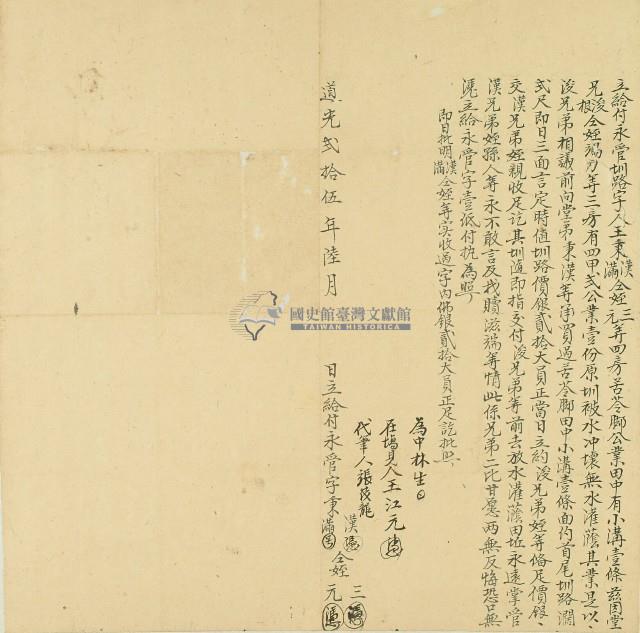 立給付永管圳路字人王秉漢滿仝姪三元等四房苦苓腳公業田中有小溝壹條茲因堂
兄浚根仝姪瑞乃等三房有四甲弍公業壹份原圳被水冲壞無水灌蔭其業是以
浚兄弟相議前向堂弟秉漢等承買過苦苓腳田中小溝壹條面約首尾圳路濶
弍尺即日三面言定時值圳路價銀貳拾大員正當日立約浚兄弟姪等俻足價銀
交漢兄弟姪親收足訖其圳隨即指交付浚兄弟等前去放水灌蔭田坵永遠掌管
漢兄弟姪孫人等永不敢言及找贖滋端等情此係兄弟二比甘愿两無反悔恐口無
憑立給永管字壹紙付执為照
即日批明漢滿仝姪等实收過字内佛銀貳拾大員正足訖批照
為中林生
在塲見人王江元
代筆人張茂龍
道光弍拾伍年陸月 日立給付永管字秉漢滿仝姪三元
國史館臺灣文獻館
TAIWAN HISTORICA